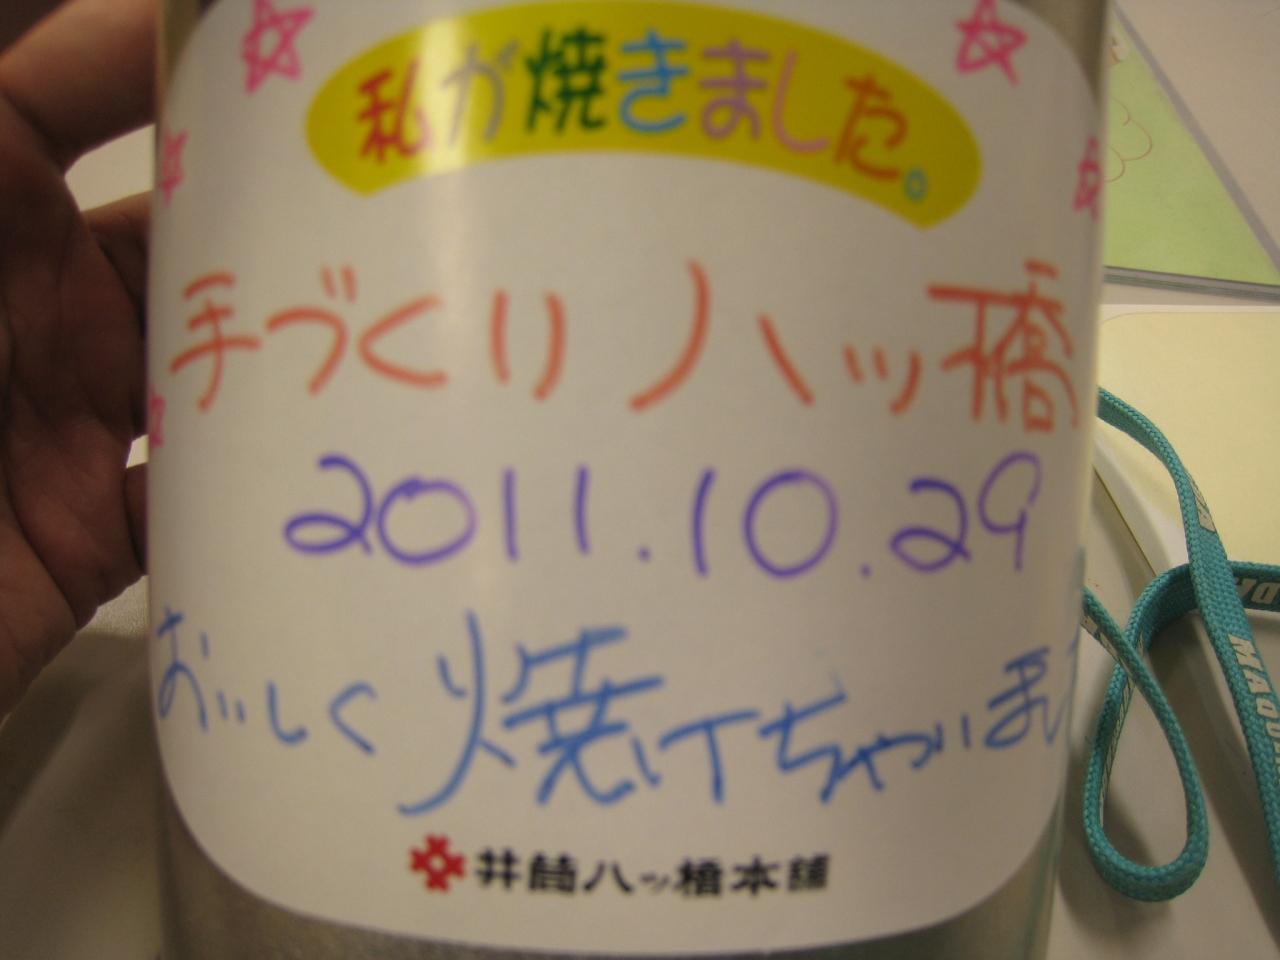 私が焼きました。
手づくり八ッ橋
2011.10.29
おいしく焼けちゃいまし
井筒八ッ橋本舗